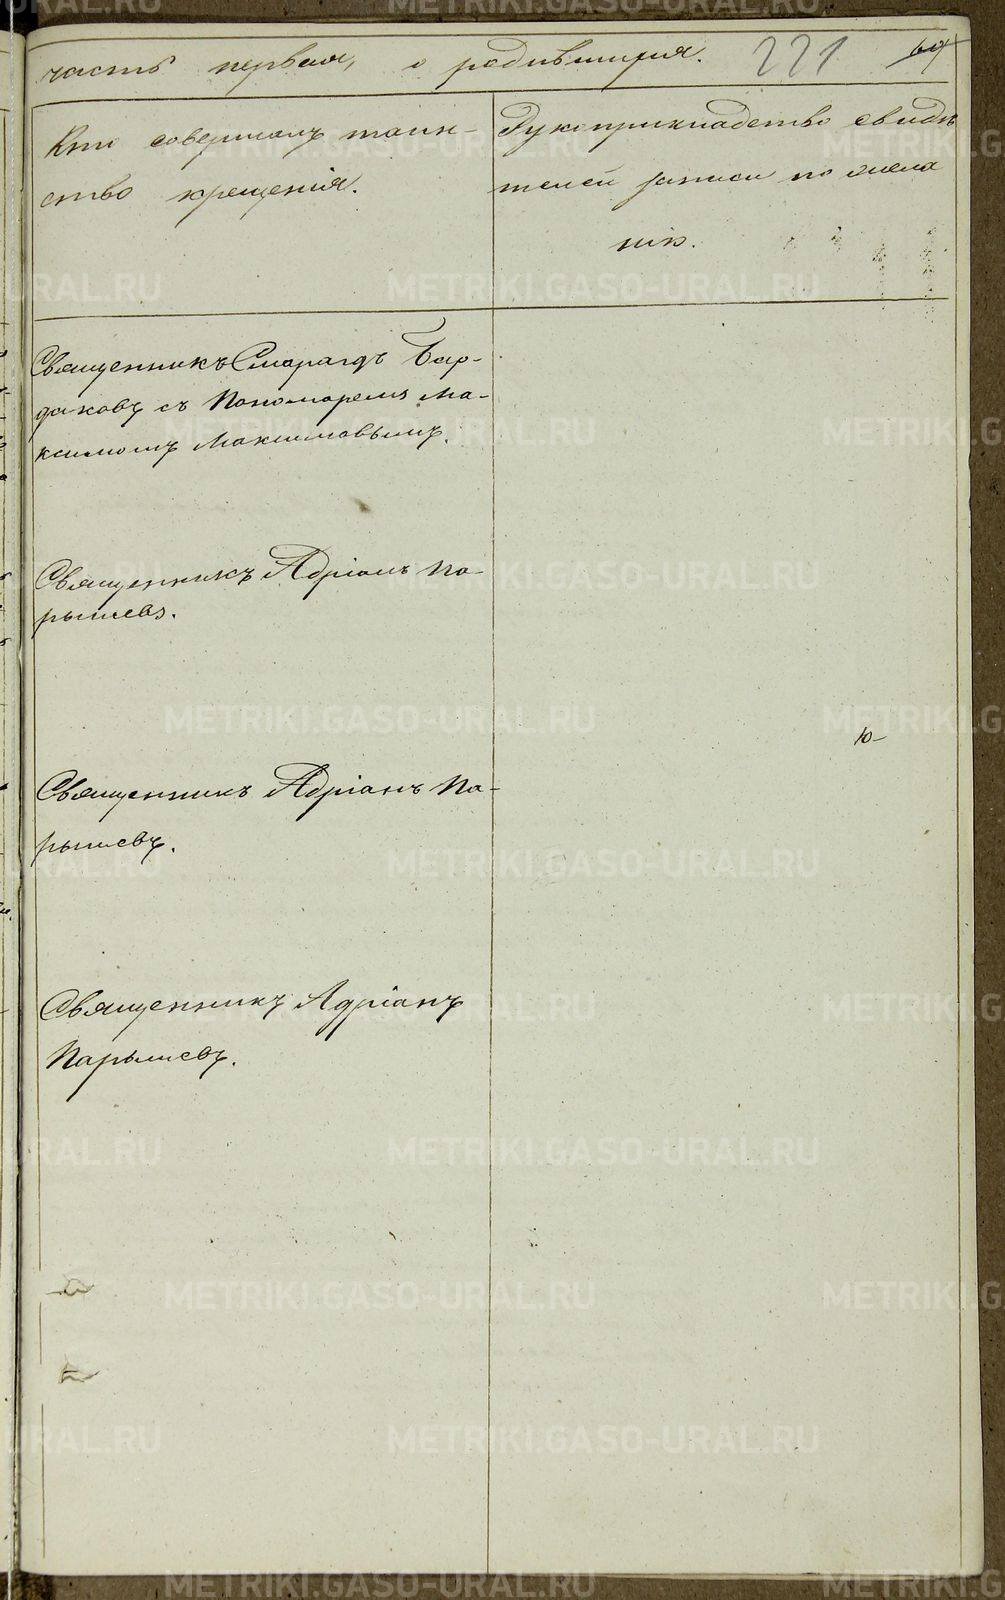 часть первая, о родившихся. 221 69
Кто совершалъ таин-
ство крещенія.
Рукоприкладство свидѣ
телей записи по жела
нію.
Священникъ Смарагдъ Бар-
даковъ съ Пономаремъ Ма-
ксимомъ Максимовымъ.
Священникъ Адріанъ Па-
рышевъ.
Священникъ Адріанъ Па-
рышевъ.
Священникъ Адріанъ
Парышевъ.
ю-
METRIKI.GASO-URAL.RU